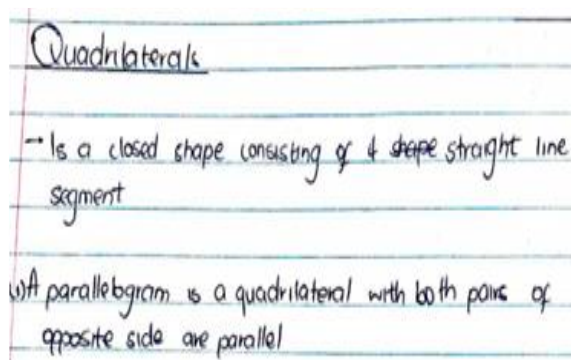 Quadrilaterals
- Is a closed shape consisting of 4 shape straight line
segment
(i) A parallelogram is a quadrilateral with both pairs of
opposite side are parallel